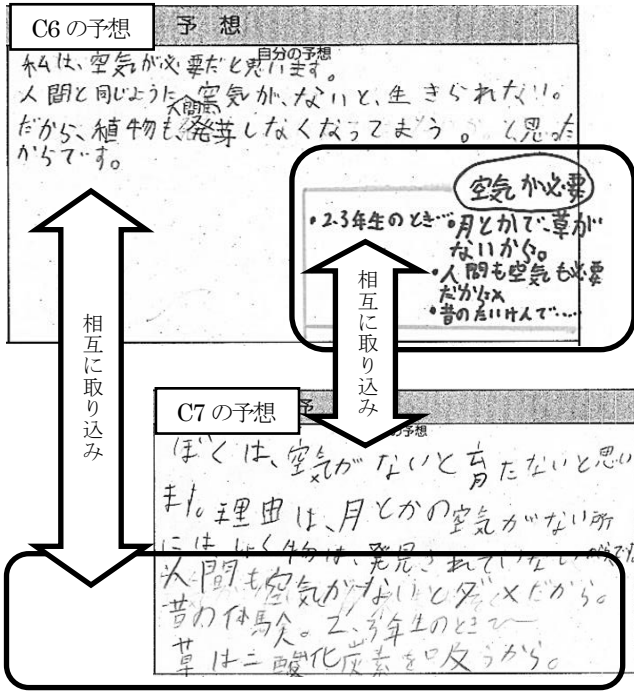 C6 の予想
予 想
自分の予想
私は、空気が必要だと思います。
人間と同じように人間も空気が、ないと、生きられない。
だから、植物も、発芽しなくなってまう。と思った
からです。
空気が必要
・2.3年生のとき…
・月とかで、草が
ないから。
・人間も空気も必要
だから
・昔のたいけんで……
相互に取り込み
相互に取り込み
C7 の予想
予
の予想
ぼくは、空気がないと育たないと思い
ます。理由は、月とかの空気がない所
には、しょく物は、発見されていない
人間も空気がないとダメだから。
昔の体験。2、3年生のとき
草は二酸化炭素を吸うから。